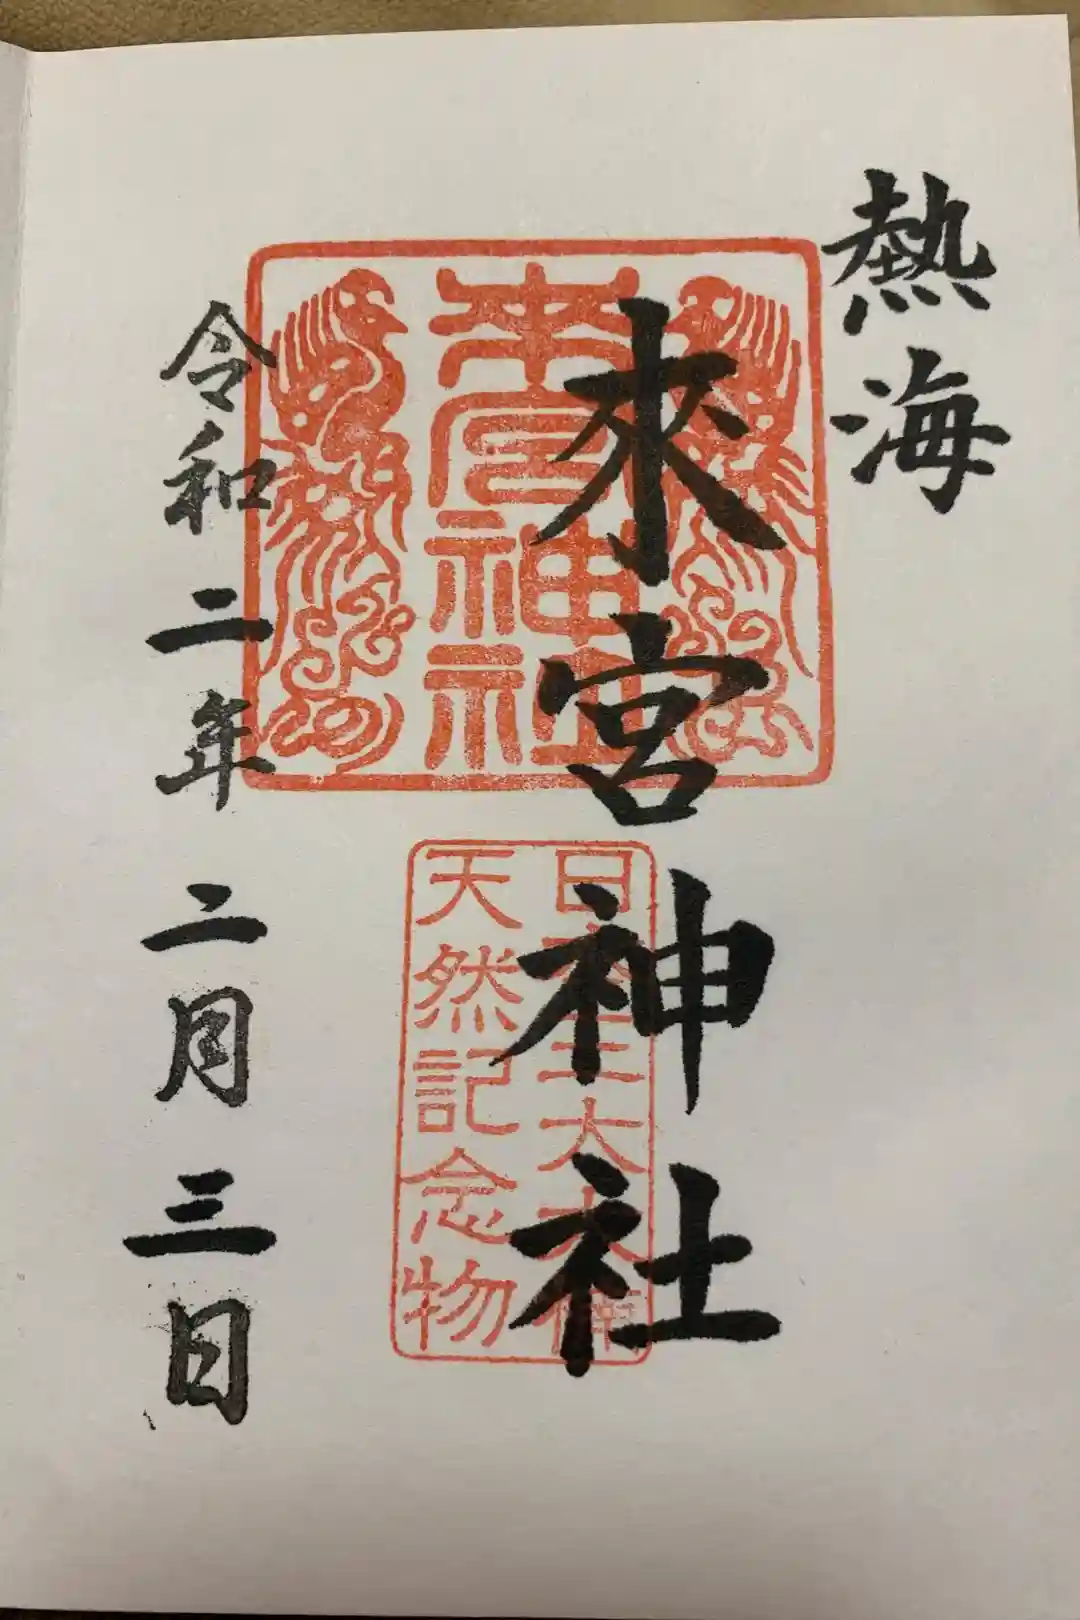 熱海
來宮神社
来宮神社
日本三大大楠
天然記念物
令和二年二月三日